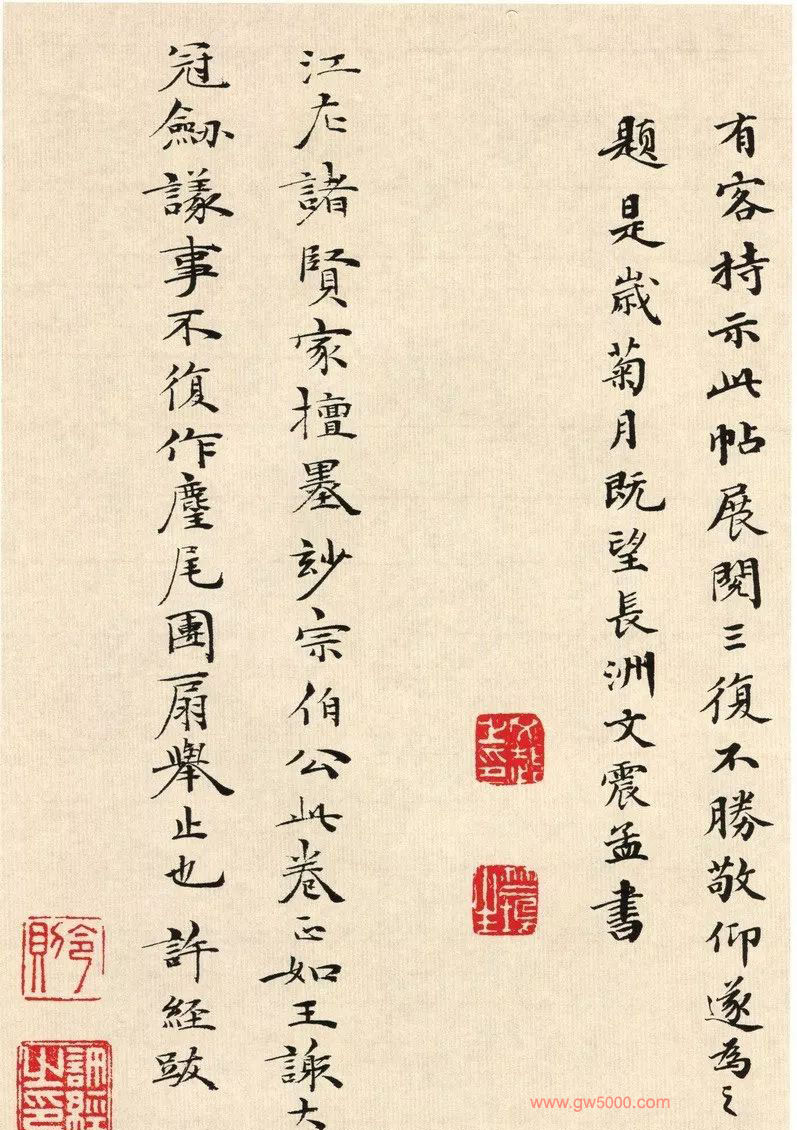 有客持示此帖展閱三復不勝敬仰遂為之
題是歲菊月既望長洲文震孟書
江左諸賢家擅墨玅宗伯公此卷正如王謝大
冠劒議事不復作麈尾團扇舉止也 許経跋
令則
許經之印
www.gw5000.com